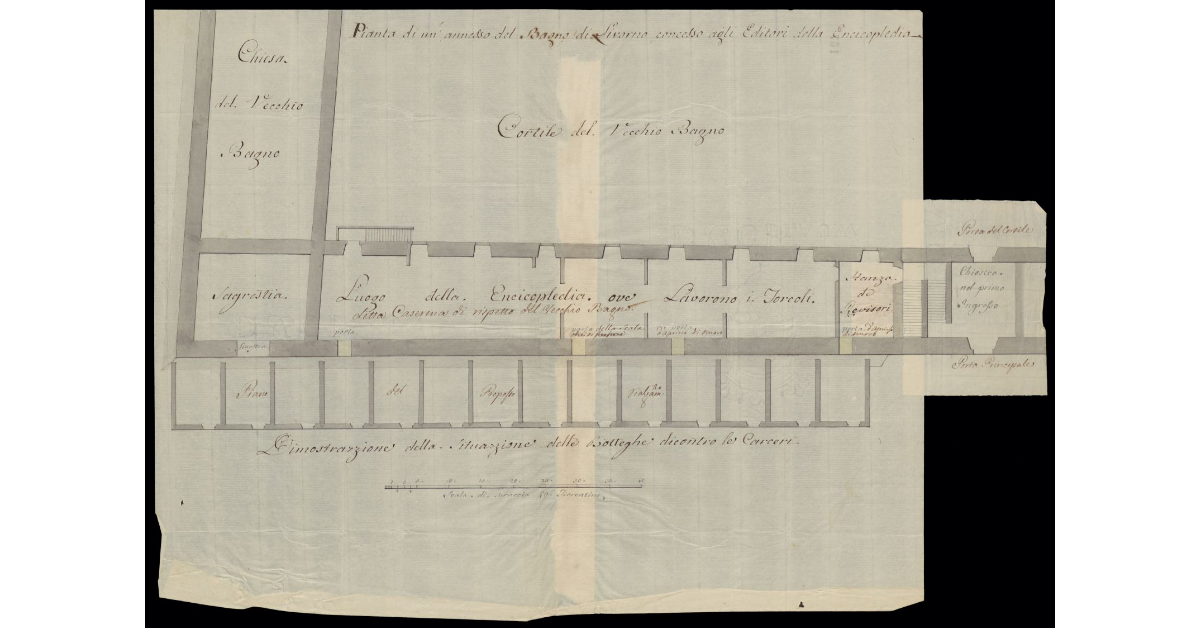 Pianta di un' annesso del Bagno di Livorno concesso agli Editori della Encicopledia
Chiesa
del Vecchio
Bagno
Cortile del Vecchio Bagno
Porta del Cortile
Sagrestia.
Luogo della Encicopledia ove Lavorono i Torcoli.
Detta Caserma di rispetto del Vecchio Bagno.
Stanza
de
Revisori
Chiesa
nel primo
Ingresso
porta
porta della scala
Porta Principale
Piano del Proposto
Dimostrazione della Situazione delle Botteghe dicontro le Carceri.
Scala di braccia 50 Fiorentine